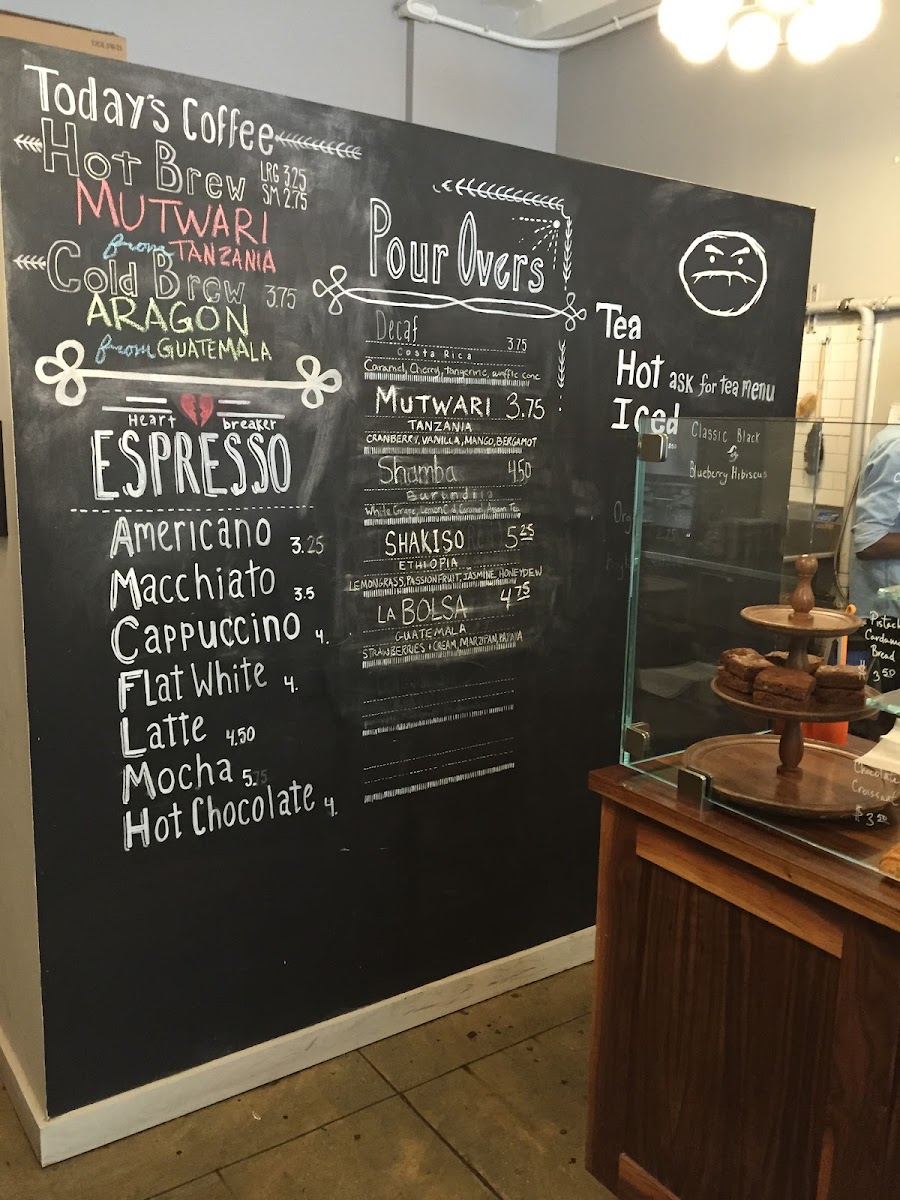 Today's Coffee
Hot Brew LRG 3.25
SM 2.75
MUTWARI
from TANZANIA
Cold Brew 3.75
ARAGON
from GUATEMALA
Heart breaker
ESPRESSO
Americano 3.25
Macchiato 3.5
Cappuccino 4.
Flat White 4.
Latte 4.50
Mocha 5.75
Hot Chocolate 4.
Pour Overs
Decaf 3.75
Costa Rica
Caramel, Cherry, tangerine, waffle cone
MUTWARI 3.75
TANZANIA
CRANBERRY, VANILLA, MANGO, BERGAMOT
Shamba 4.50
White Grape, Caramel,
SHAKISO 5.25
ETHIOPIA
LEMONGRASS, PASSIONFRUIT, JASMINE, HONEYDEW
LA BOLSA 4.75
GUATEMALA
STRAWBERRIES & CREAM, MARZIPAN, PAPAYA
Tea
Hot ask for tea menu
Iced
Classic Black
&
Blueberry Hibiscus
Bread
3.50
Chocolate
$3.50